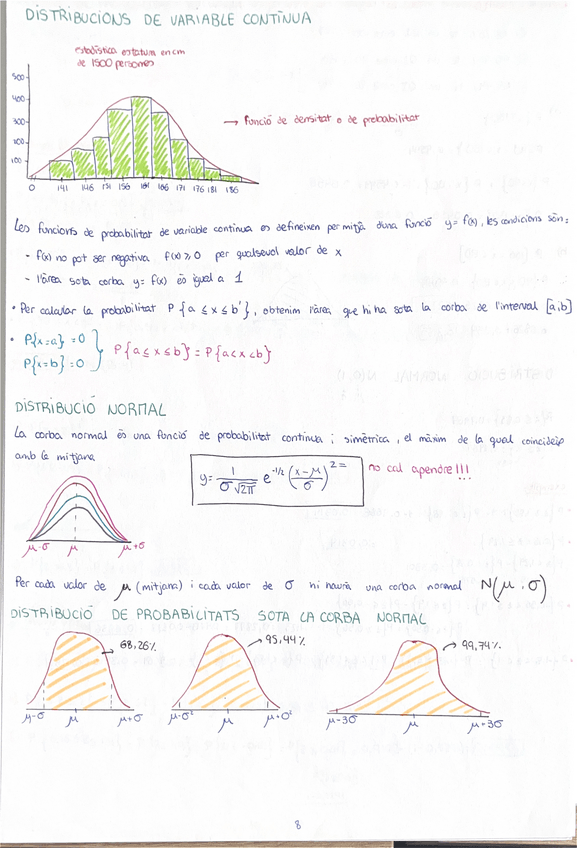 DISTRIBUCIONS DE VARIABLE CONTÍNUA
estadística estatura en cm
de 1500 persones
500
400
300
200
100
→ funció de densitat o de probabilitat
0 141 146 151 156 161 166 171 176 181 186
Les funcions de probabilitat de variable contínua es defineixen per mitjà d'una funció y = f(x), les condicions són:
- f(x) no pot ser negativa f(x) ≥ 0 per qualsevol valor de x
- l'àrea sota corba y = f(x) és igual a 1
• Per calcular la probabilitat P{a ≤ x ≤ b'}, obtenim l'àrea, que hi ha sota la corba de l'interval [a,b]
• P{x=a} = 0
P{x=b} = 0
P{a ≤ x ≤ b} = P{a < x < b}
DISTRIBUCIÓ NORMAL
La corba normal és una funció de probabilitat contínua i simètrica, el màxim de la qual coincideix
amb la mitjana
y = 1/σ√2π e^-1/2 (x-μ/σ)^2 =
no cal apendre!!!
μ-σ μ μ+σ
Per cada valor de μ (mitjana) i cada valor de σ hi haurà una corba normal N(μ, σ)
DISTRIBUCIÓ DE PROBABILITATS SOTA LA CORBA NORMAL
→ 68,26%
→ 95,44%
→ 99,74%
μ-σ μ μ+σ
μ-σ² μ μ+σ²
μ-3σ μ μ-3σ
8